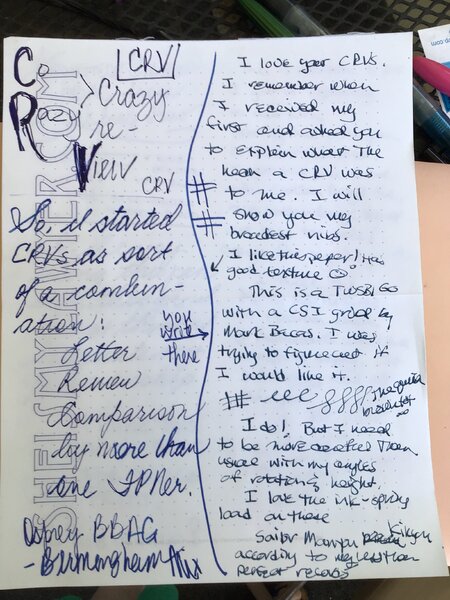 CRV
CRazy
Crazy
re-
View
CRV
So, I started
CRVs as sort
of a combin-
ation:
Letter
Review
Comparison
by more than
one FPNer.
Osprey BBAG
- Birmingham
SHEISMYLAWYER.COM
you
write
there
I love your CRVs.
I remember when
I received my
first and asked you
to explain what the
a CRV was
to me. I will
show you my
broadest nibs.
I like this paper! Has
good texture
This is a TWSBI Go
with a CSI grind by
Mark Bacas. I was
trying to figure out if
I would like it.
I do! But I need
to be more careful than
usual with my angles
of rotating, height.
I love the ink-spring
load on these
Sailor Manyo
according to my less than
perfect records